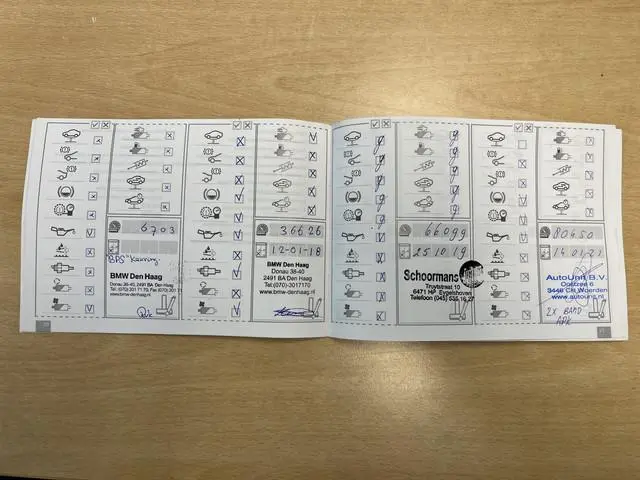 6703
BPS keuring
BMW Den Haag
Donau 38-40, 2491 BA Den Haag
www.bmw-denhaag.nl
36626
12-01-18
BMW Den Haag
Donau 38-40
2491 BA Den Haag
Tel:(070)-3017170
www.bmw-denhaag.nl
66099
25 10 19
Schoormans
Truytstraat 10
6471 HP Eygelshoven
80450
14 01 21
AutoUnit B.V.
3448 CH Woerden
www.autounit.nl
2X BAND
APK